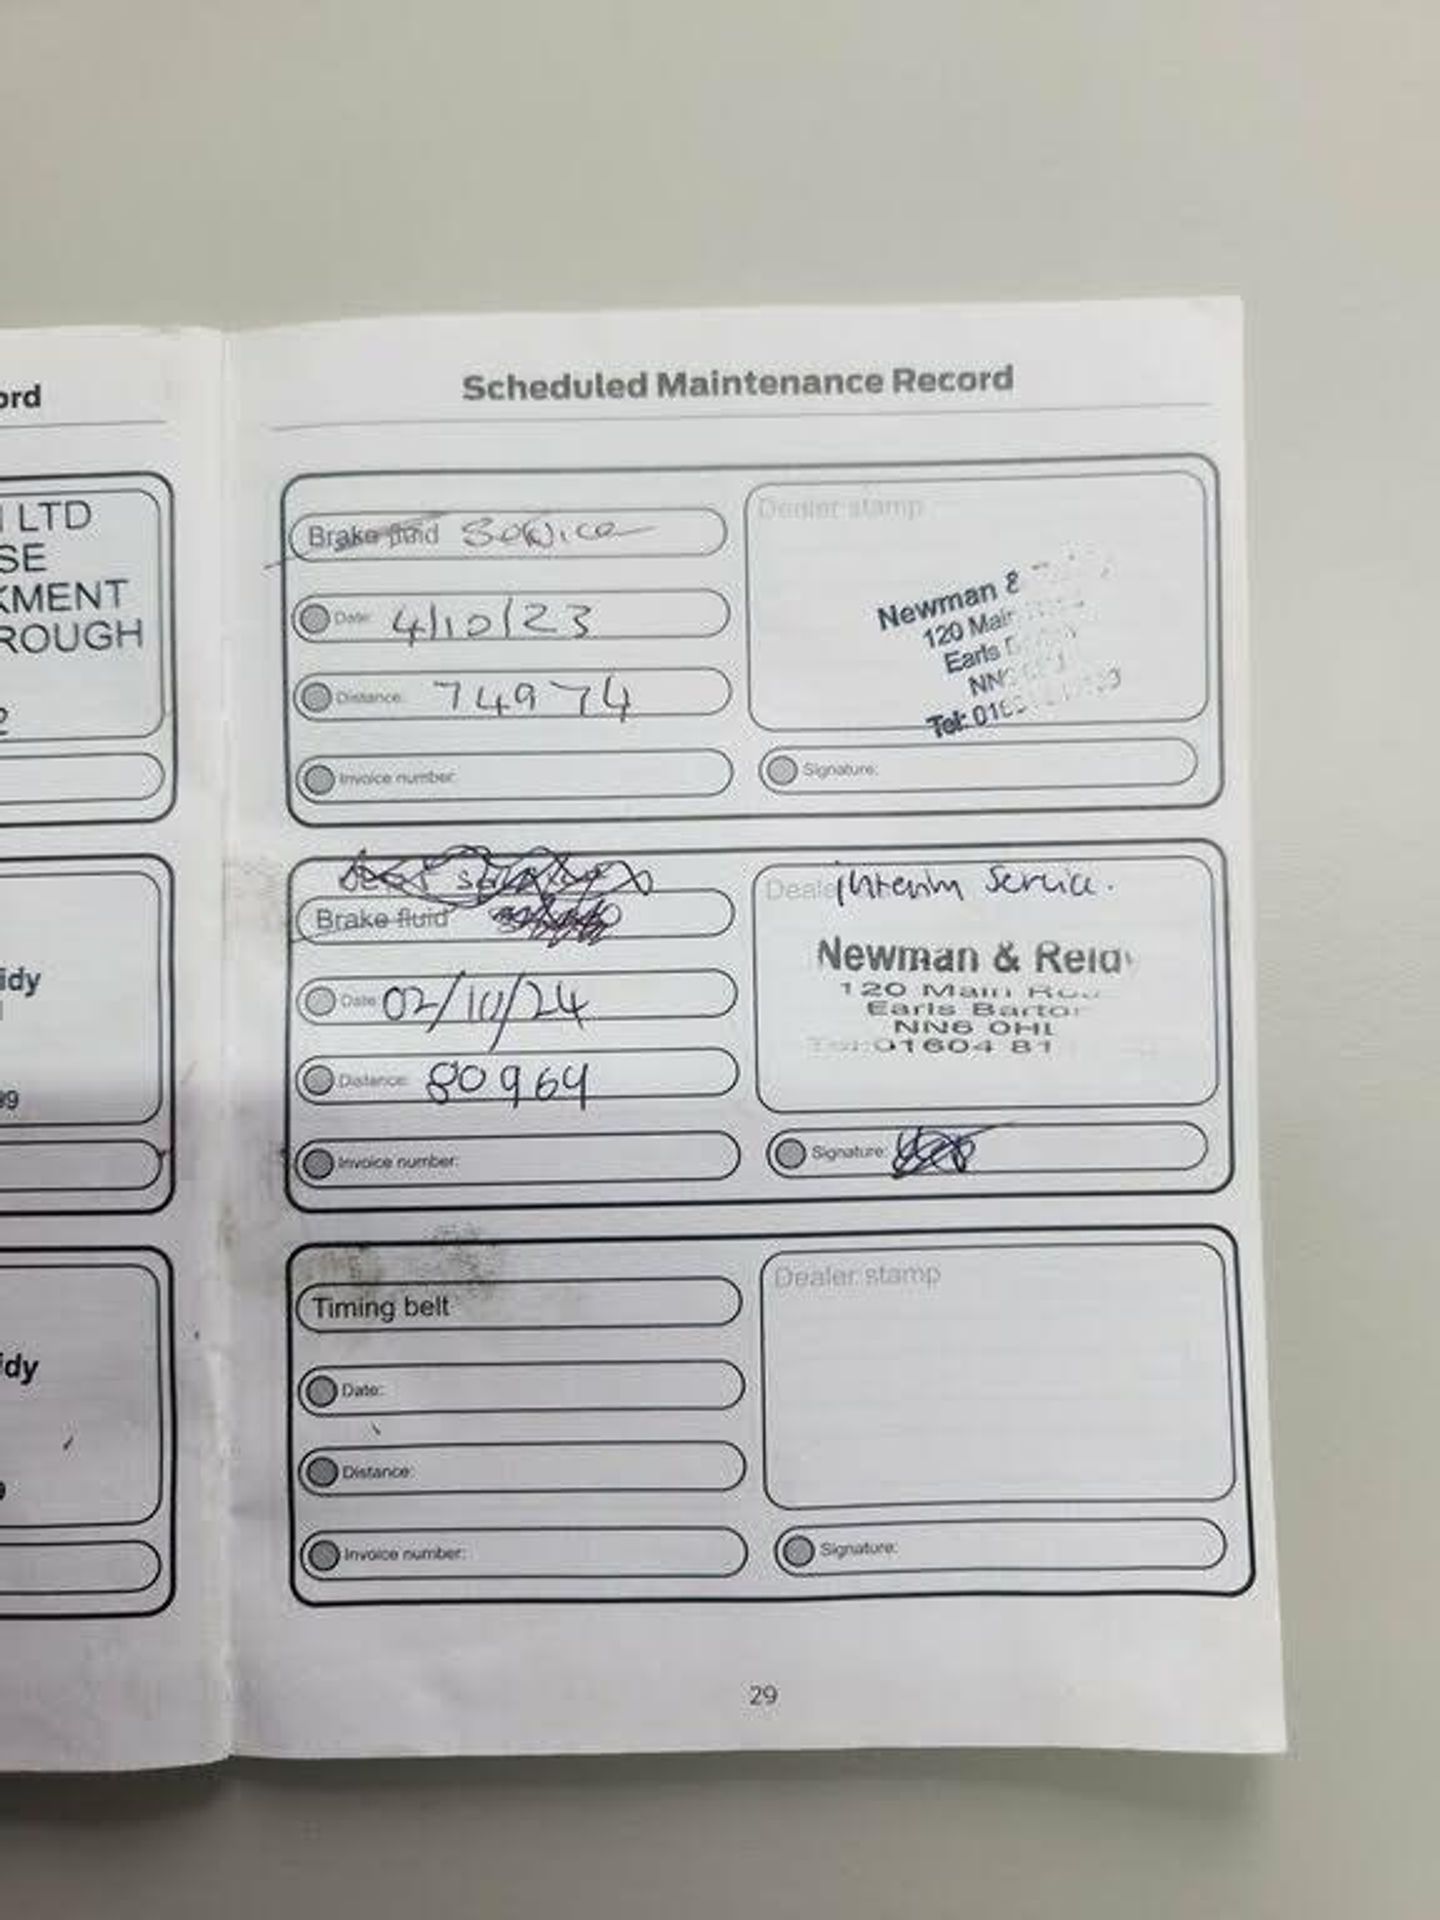 ord
LTD
SE
KMENT
ROUGH
2
idy
99
idy
9
Scheduled Maintenance Record
Brake fluid Service
Date: 4/10/23
Distance: 74974
Invoice number:
Dealer stamp
Newman &
120 Main
Earls
Tel:
Signature:
Brake fluid
Date: 02/10/24
Distance: 80964
Invoice number:
Interim Service.
Newman & Reid
120 Main
Earls Barto
NN6 0HL
Tel:01604 81
Signature:
Timing belt
Date:
Distance:
Invoice number:
Dealer stamp
Signature:
29